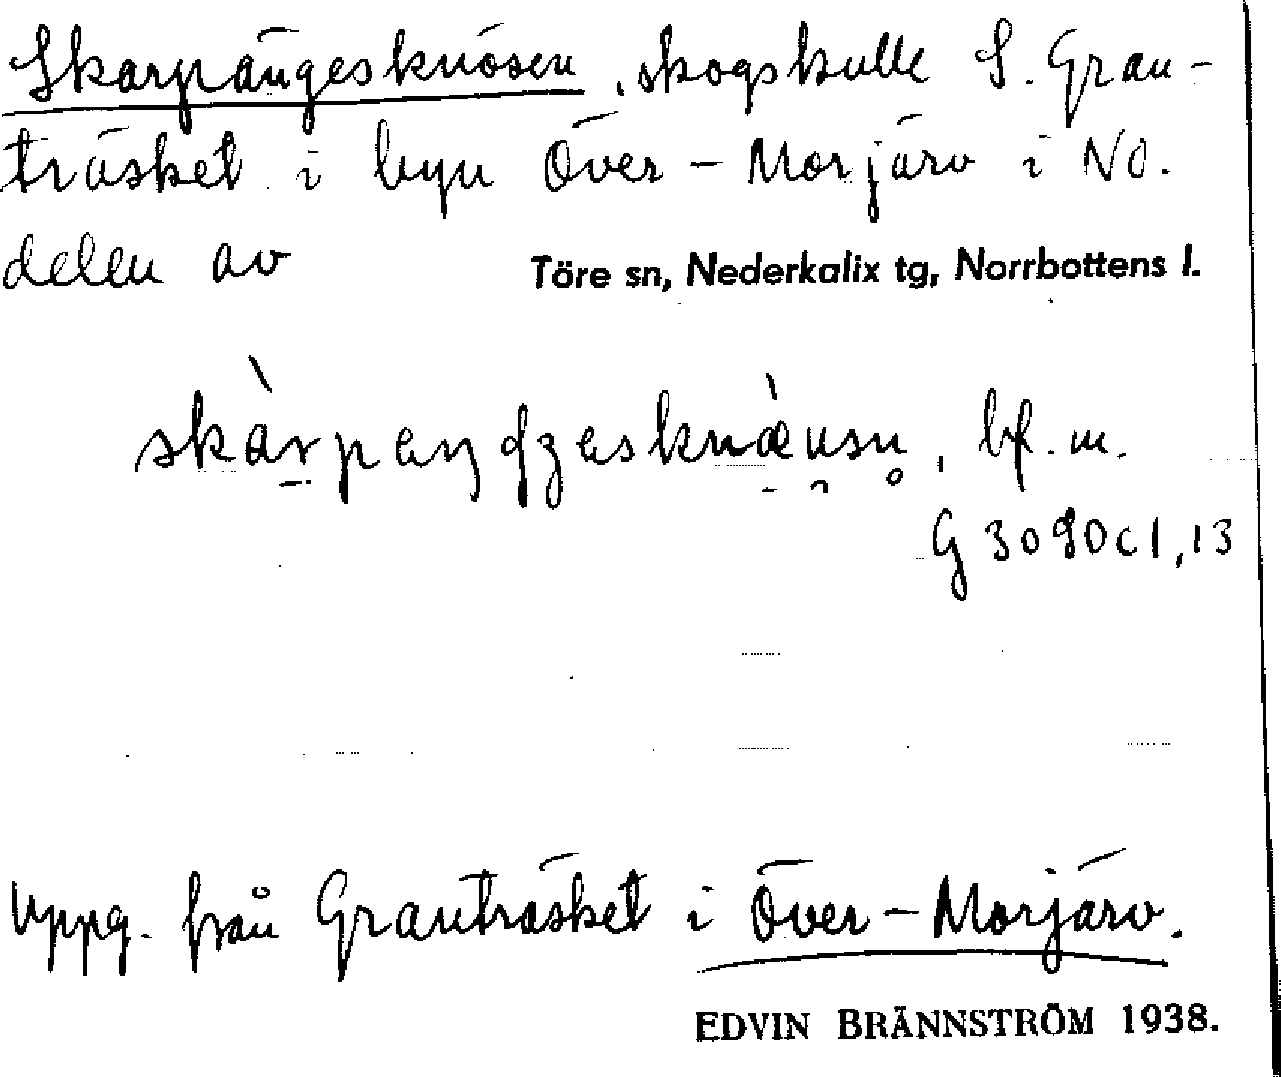 Skarpängesknösen, skogskulle S. Gran-
träsket i byn Över-Morjärv i NO.
delen av Töre sn, Nederkalix tg, Norrbottens l.
bf. m.
G 3090c1,13
Uppg. från Granträsket i Över-Morjärv.
EDVIN BRÄNNSTRÖM 1938.